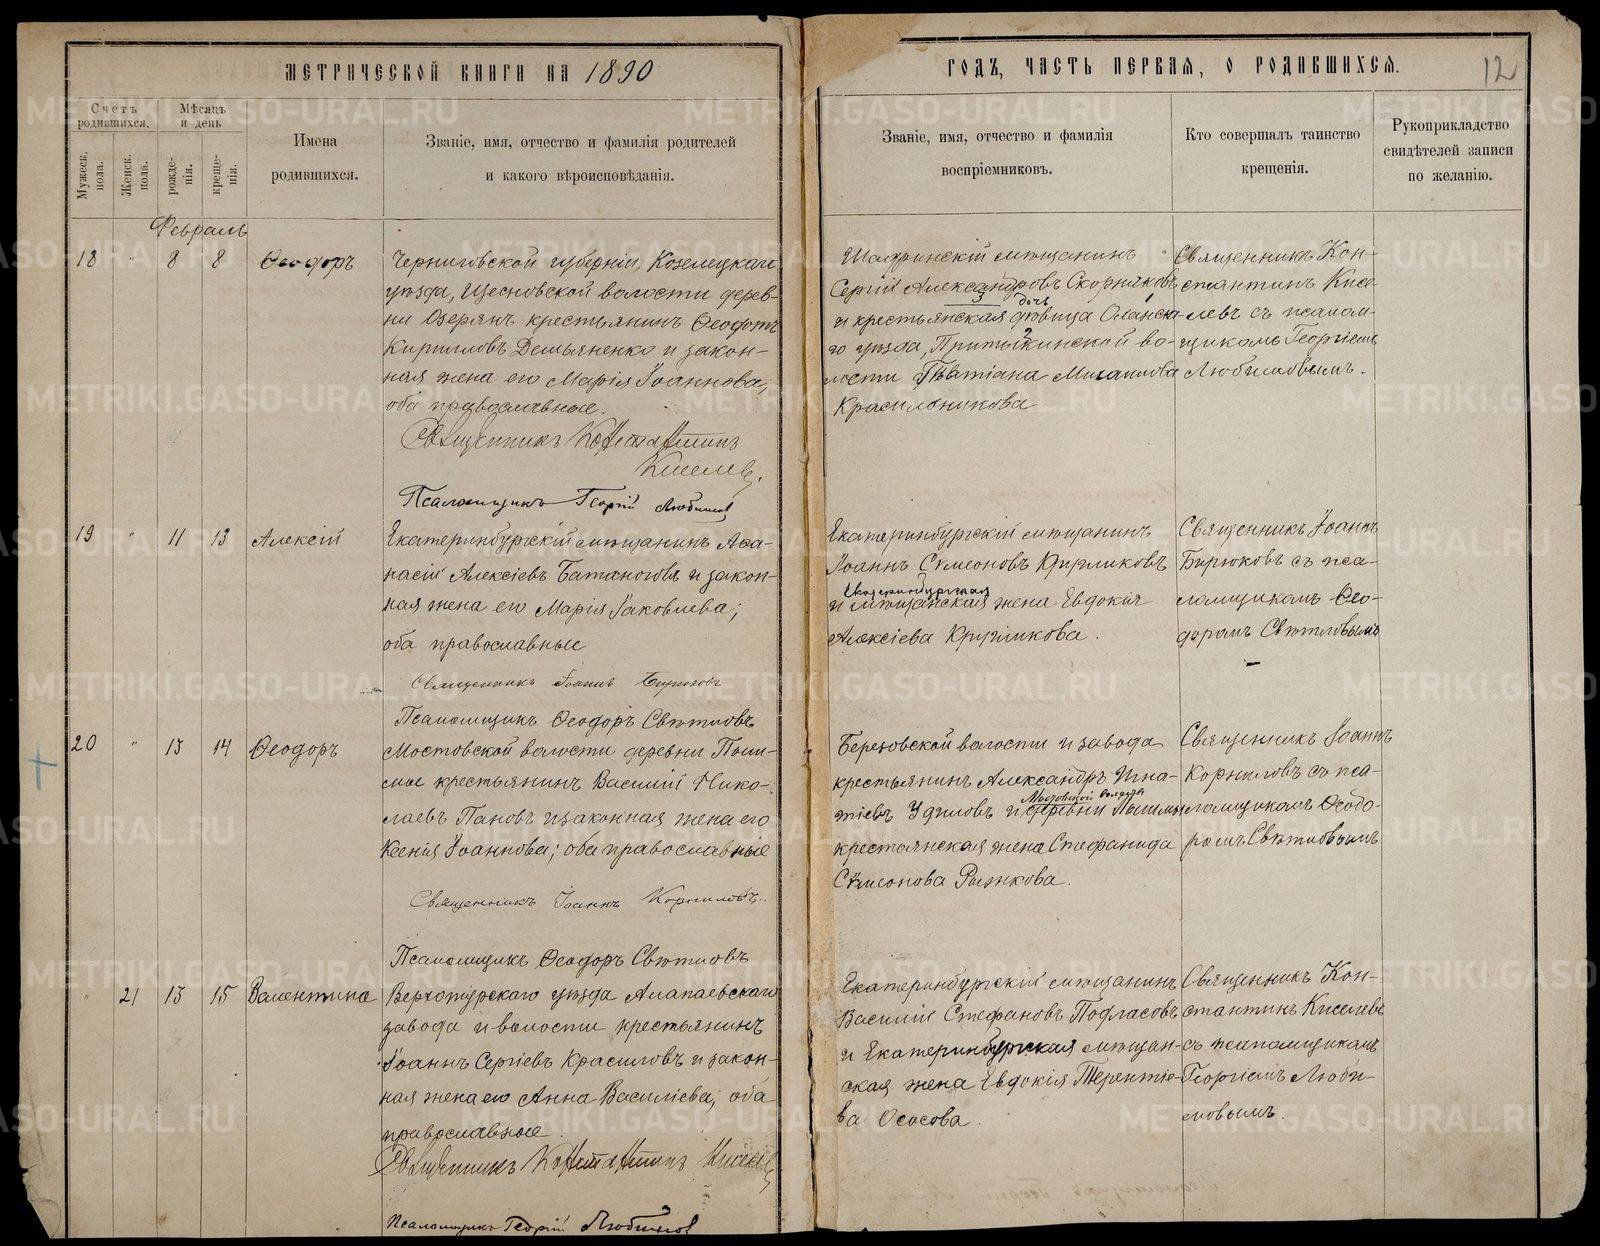 МЕТРИЧЕСКОЙ КНИГИ НА 1890
ГОДЪ, ЧАСТЬ ПЕРВАЯ, О РОДИВШИХСЯ.
12
Счетъ родившихся.
Мѣсяцъ и день
Мужеск. пола.
Женск. пола.
рожде-нія.
креще-нія.
Имена
родившихся.
Званіе, имя, отчество и фамилія родителей
и какого вѣроисповѣданія.
Званіе, имя, отчество и фамилія
воспріемниковъ.
Кто совершалъ таинство
крещенія.
Рукоприкладство
свидѣтелей записи
по желанію.
Февраль
18 " 8 8 Ѳеодоръ
Черниговской губерніи, Козелецкаго
уѣзда, волости дерев-
ни Озерянъ крестьянинъ Ѳеодотъ
Кирилловъ Демьяненко и закон-
ная жена его Марія Іоаннова,
оба православные.
Священникъ Константинъ
Киселевъ.
Псаломщикъ Георгій Любимов
Шадринскій мѣщанинъ
Сергій Александровъ Скорняковъ
и крестьянская дочь дѣвица
го уѣзда, во-
лости Михаилова
Красильникова
Священникъ Кон-
стантинъ Кисе-
левъ съ псалом-
щикомъ Георгіемъ
Любимовымъ.
19 " 11 13 Алексій
Екатеринбургскій мѣщанинъ Аѳа-
насій Алексіевъ и закон-
ная жена его Марія Іаковлева;
оба православные
Священникъ Іоаннъ Бирюковъ
Псаломщикъ Ѳеодоръ Свѣтловъ
Екатеринбургскій мѣщанинъ
Іоаннъ Сѵмеоновъ Кругликовъ
Екатеринбургская
и мѣщанская жена Евдокія
Алексіева Кругликова.
Священникъ Іоаннъ
Бирюковъ съ пса-
ломщикомъ Ѳео-
доромъ Свѣтловымъ
20 " 13 14 Ѳеодоръ
Мостовской волости деревни
крестьянинъ Василій Нико-
лаевъ Пановъ и законная жена его
Ксенія Іоаннова; оба православные
Священникъ Іоаннъ Корниловъ.
Псаломщикъ Ѳеодоръ Свѣтловъ
Березовской волости и завода
крестьянинъ Александръ Игна-
тіевъ Удиловъ и деревни
Мостовской волости
крестьянская жена Стефанида
Сѵмеонова Рыжкова.
Священникъ Іоаннъ
Корниловъ съ пса-
ломщикомъ Ѳеодо-
ромъ Свѣтловымъ
" 21 13 15 Валентина
Верхотурскаго уѣзда Алапаевскаго
завода и волости крестьянинъ
Іоаннъ Сергіевъ Красиловъ и закон-
ная жена его Анна Василіева; оба
православные.
Священникъ Константинъ Киселевъ
Псаломщикъ Георгій Любимов
Екатеринбургскій мѣщанинъ
Василій Стефановъ Подгласовъ
и Екатеринбургская мѣщан-
ская жена Евдокія Терентіе-
ва Ососова.
Священникъ Кон-
стантинъ Киселевъ
съ псаломщикомъ
Георгіемъ Люби-
мовымъ.
METRIKI.GASO-URAL.RU